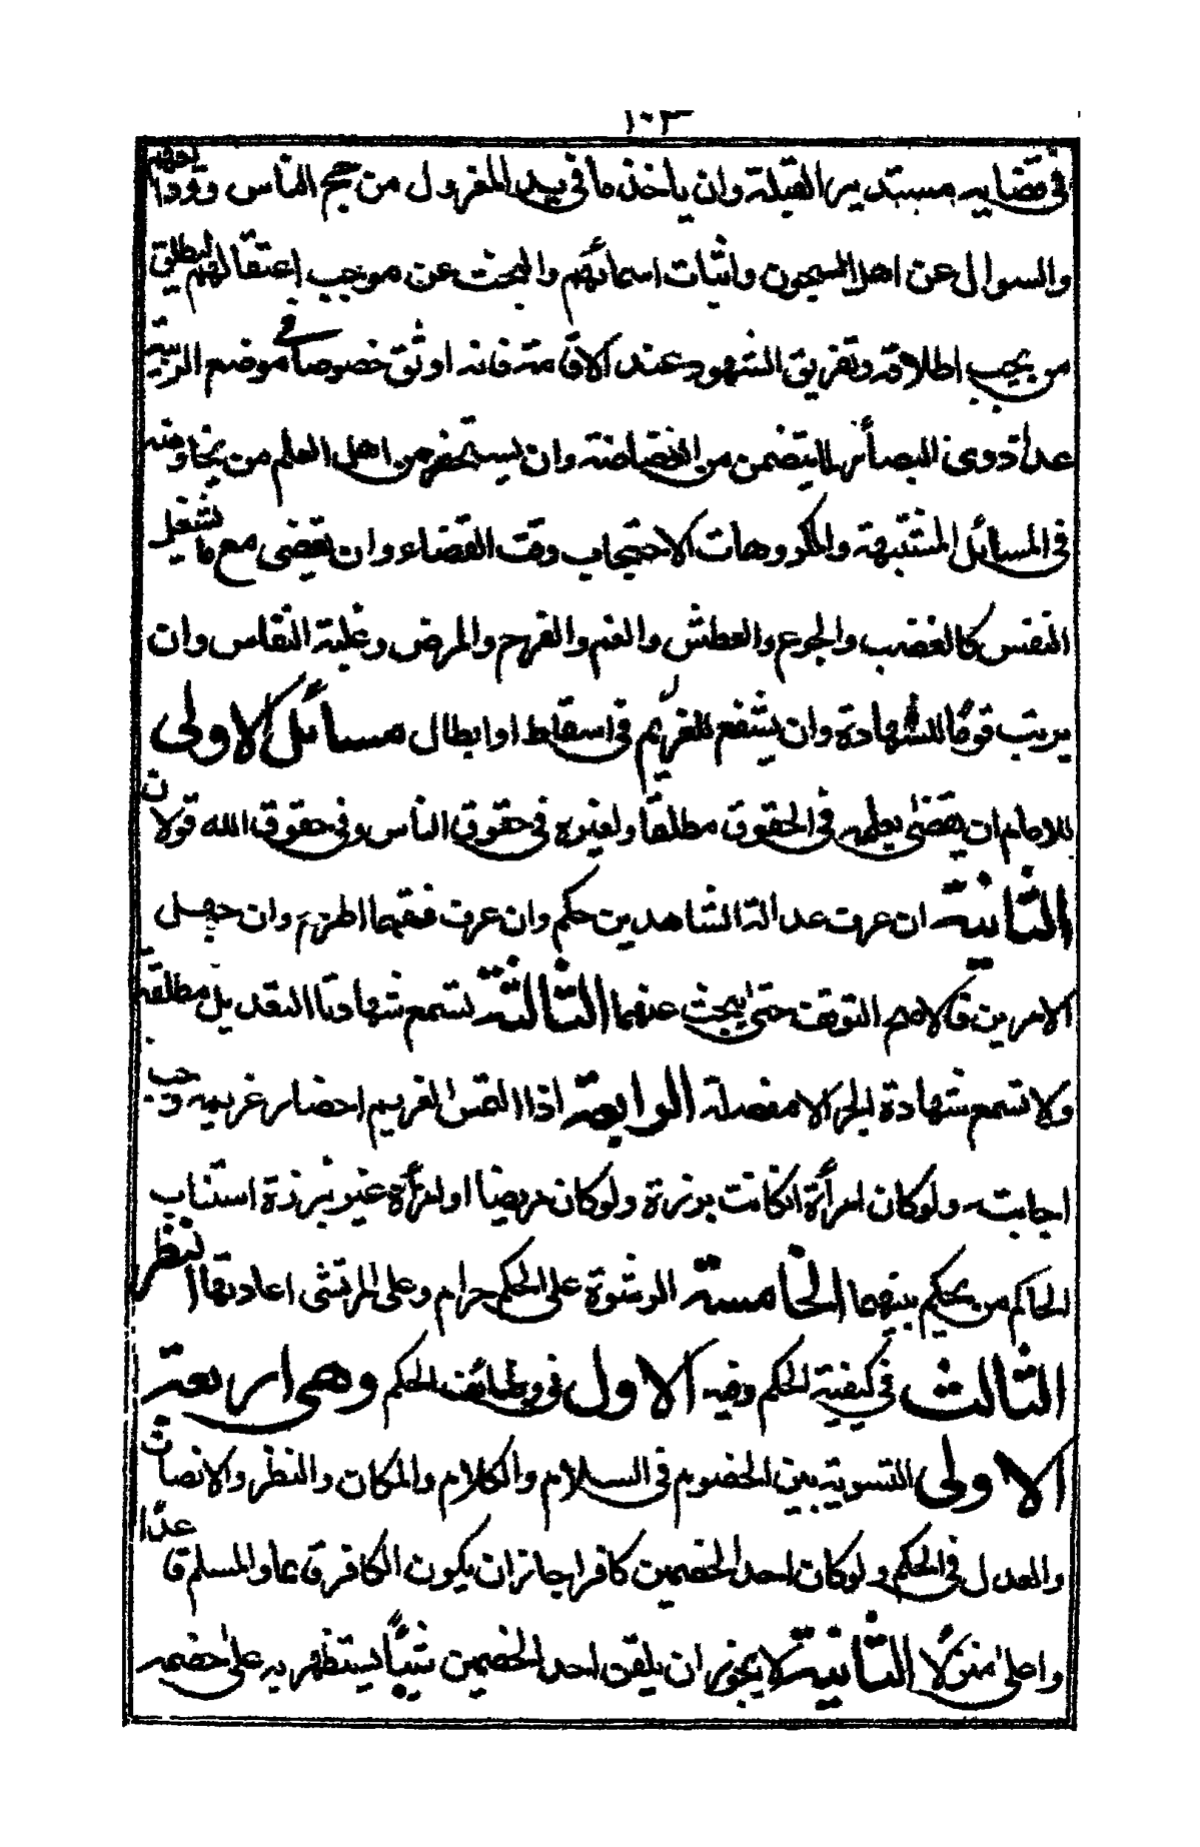 ١٠٣
في قضايه مستدير القبلة وان ياخذ ما في يد المعزول من حجج الناس وودائعهم
والسوال عن اهل السجون واثبات اسمائهم والبحث عن موجب اعتقالهم ليطلق
من يجب اطلاقه وتفريق الشهود عند الاقامة فانه اوثق خصوصا في موضع الريبة
عدا ذوى البصائر لما يتضمن من الغضاضة وان يستحضر من اهل العلم من يخاوضه
في المسائل المشتبهة والمكروهات الاحتجاب وقت القضاء وان يقضى مع ما يشغل
النفس كالغضب والجوع والعطش والغم والفرح والمرض وغلبة النعاس وان
يرتب قوما للشهادة وان يشفع للغريم في اسقاط او ابطال مسائل الاولى
للامام ان يقضى بعلمه في الحقوق مطلقا ولغيره في حقوق الناس وفي حقوق الله قولان
الثانية ان عرف عدالة الشاهدين حكم وان عرف فسقهما اطرح وان جهل
الامرين فالاصح التوقف حتى يبحث عنهما الثالثة تسمع شهادة التعديل مطلقة
ولا تسمع شهادة الجرح الا مفصلة الرابعة اذا التمس الغريم احضار غريمه وجب
اجابته ولو كان امرأة ان كانت برزة ولو كان مريضا او امرأة غير برزة استناب
الحاكم من يحكم بينهما الخامسة الرشوة على الحكم حرام وعلى المرتشى اعادتها النظر
الثالث في كيفية الحكم وفيه الاول في وظائف الحكم وهى اربعة
الاولى التسوية بين الخصوم في السلام والكلام والمكان والنظر والانصات
والعدل في الحكم ولو كان احد الخصمين كافرا جاز ان يكون الكافر قائما والمسلم قاعدا
واعلى منزلا الثانية لا يجوز ان يلقن احد الخصمين شيئا يستظهر به على خصمه